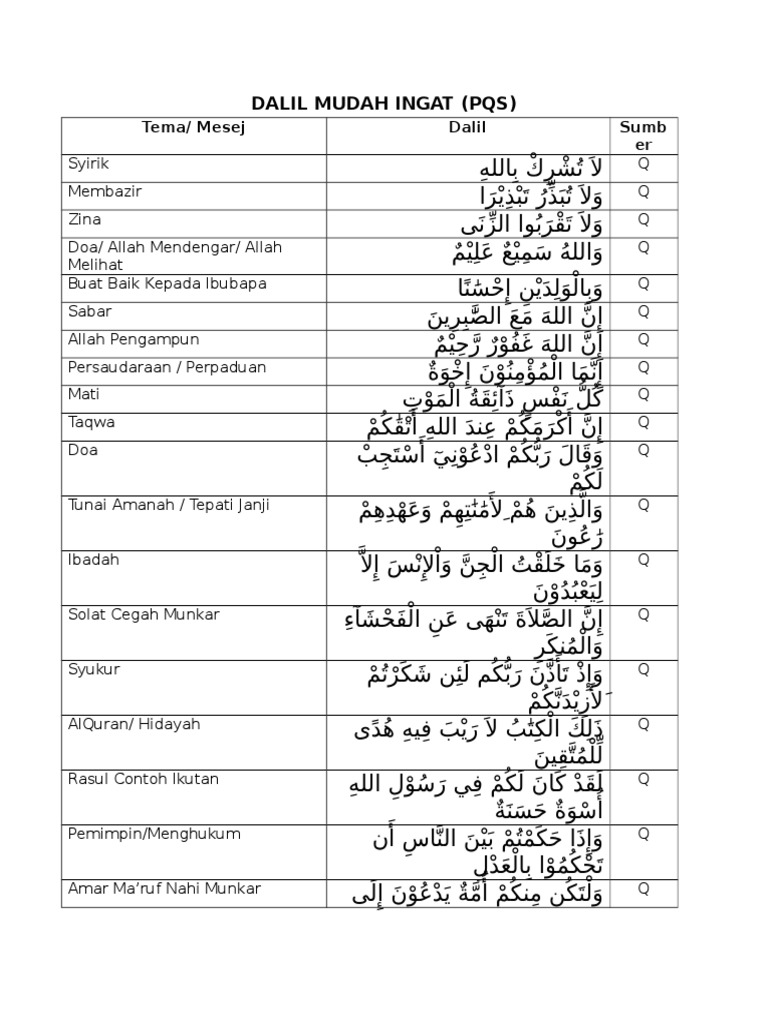 DALIL MUDAH INGAT (PQS)
Tema/ Mesej Dalil Sumb
er
Syirik لاَ تُشْرِكْ بِاللهِ Q
Membazir وَلاَ تُبَذِّرْ تَبْذِيْرَا Q
Zina وَلاَ تَقْرَبُوا الزِّنَى Q
Doa/ Allah Mendengar/ Allah وَاللهُ سَمِيْعٌ عَلِيْمٌ Q
Melihat
Buat Baik Kepada Ibubapa وَبِالْوَلِدَيْنِ إِحْسَٰنًا Q
Sabar إِنَّ اللهَ مَعَ الصَّٰبِرِينَ Q
Allah Pengampun إِنَّ اللهَ غَفُوْرٌ رَّحِيْمٌ Q
Persaudaraan / Perpaduan إِنَّمَا الْمُؤْمِنُوْنَ إِخْوَةٌ Q
Mati كُلُّ نَفْسٍ ذَآئِقَةُ الْمَوْتِ Q
Taqwa إِنَّ أَكْرَمَكُمْ عِندَ اللهِ أَتْقَٰكُمْ Q
Doa وَقَالَ رَبُّكُمْ ادْعُوْنِيٓ أَسْتَجِبْ Q
لَكُمْ
Tunai Amanah / Tepati Janji وَالَّذِينَ هُمْ ِلأَمَٰنَٰتِهِمْ وَعَهْدِهِمْ Q
رَٰعُونَ
Ibadah وَمَا خَلَقْتُ الْجِنَّ وَاْلإِنْسَ إِلاَّ Q
لِيَعْبُدُوْنَ
Solat Cegah Munkar إِنَّ الصَّلاَةَ تَنْهَى عَنِ الْفَحْشَآءِ Q
وَالْمُنكَرِ
Syukur وَإِذْ تَأَذَّنَ رَبُّكُم لَئِن شَكَرْتُمْ Q
َلأَزِيْدَنَّكُمْ
AlQuran/ Hidayah ذَلِكَ الْكِتَٰبُ لاَ رَيْبَ فِيهِ هُدًى Q
لِّلْمُتَّقِينَ
Rasul Contoh Ikutan لَقَدْ كَانَ لَكُمْ فِي رَسُوْلِ اللهِ Q
أُسْوَةٌ حَسَنَةٌ
Pemimpin/Menghukum وَإِذَا حَكَمْتُمْ بَيْنَ النَّاسِ أَن Q
تَحْكُمُوْا بِالْعَدْلِ
Amar Ma’ruf Nahi Munkar وَلْتَكُن مِنكُمْ أُمَّةٌ يَدْعُوْنَ إِلَى Q